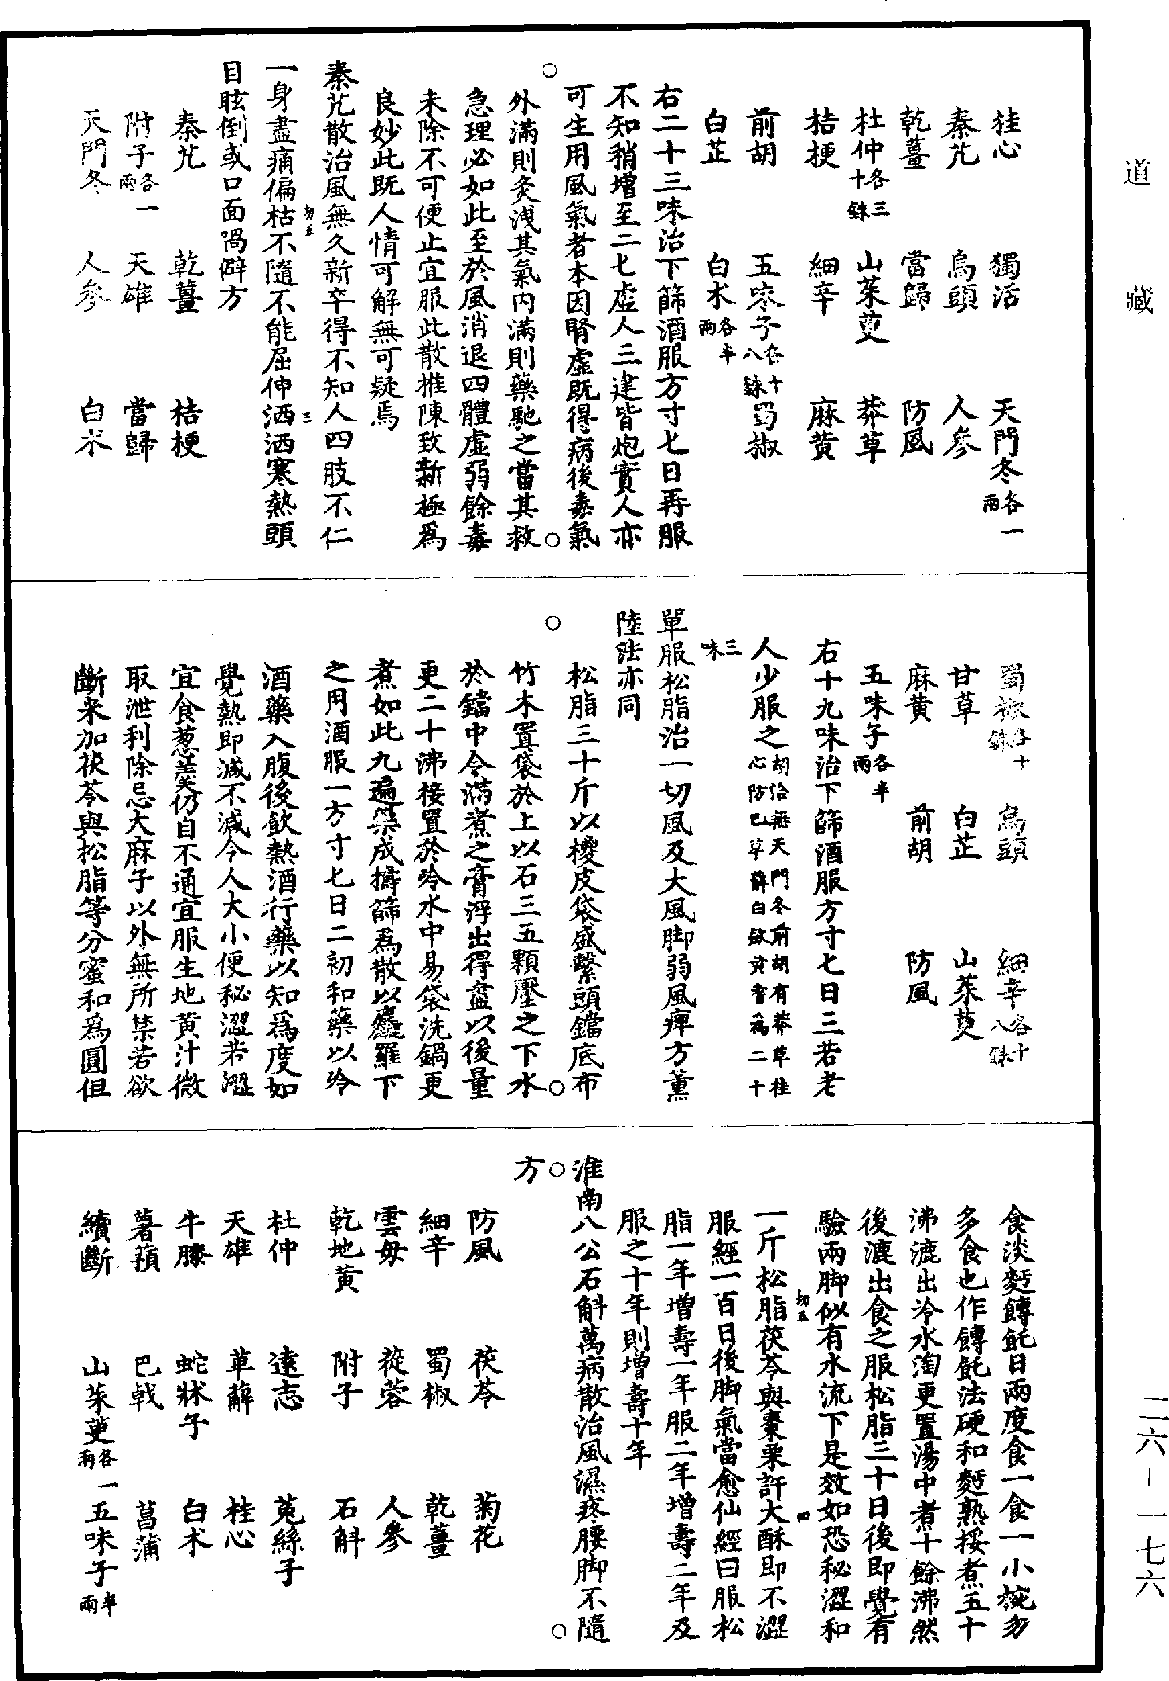 道藏
二六—一七六
桂心 獨活 天門冬各一兩
秦艽 烏頭 人參
乾薑 當歸 防風
杜仲各三十銖 山茱萸 莽草
桔梗 細辛 麻黄
前胡 五味子各十八銖 蜀椒
白芷 白朮各半兩
右二十三味治下篩酒服方寸匕日再服
不知稍增至二匕虛人三建皆炮實人亦
可生用風氣者本因腎虛既得病後毒氣
外滿則灸洩其氣内滿則藥馳之當其救
急理必如此至於風消退四體虛弱餘毒
未除不可便止宜服此散推陳致新極爲
良妙此既人情可解無可疑焉
秦艽散治風無久新卒得不知人四肢不仁
一身盡痛偏枯不隨不能屈伸洒洒寒熱頭
目眩倒或口面喎僻方
秦艽 乾薑 桔梗
附子各一兩 天雄 當歸
天門冬 人參 白朮
蜀椒各十銖 烏頭 細辛各十八銖
甘草 白芷 山茱萸
麻黄 前胡 防風
五味子各半兩
右十九味治下篩酒服方寸匕日三若老
人少服之胡洽無天門冬前胡有莽草桂心防己萆薢白蘞黄耆爲二十
三味
單服松脂治一切風及大風脚弱風痺方薰
陸法亦同
松脂三十斤以椶皮袋盛繫頭鐺底布
竹木置袋於上以石三五顆壓之下水
於鐺中令滿煮之膏浮出得盡以後量
更二十沸接置於冷水中易袋洗鍋更
煮如此九遍藥成擣篩爲散以麤羅下
之用酒服一方寸匕日二初和藥以冷
酒藥入腹後飲熱酒行藥以知爲度如
覺熱即減不減令人大小便秘澀若澀
宜食葱羹仍自不通宜服生地黄汁微
取泄利除忌大麻子以外無所禁若欲
斷米加茯苓與松脂等分蜜和爲圓但
食淡麪餺飥日兩度食一食一小椀勿
多食也作餺飥法硬和麪熟挼煮五十
沸漉出冷水淘更置湯中煮十餘沸然
後漉出食之服松脂三十日後即覺有
驗兩脚似有水流下是效如恐秘澀和
一斤松脂茯苓與棗栗許大酥即不澀
服經一百日後脚氣當愈仙經曰服松
脂一年增壽一年服二年增壽二年及
服之十年則增壽十年
淮南八公石斛萬病散治風濕疼腰脚不隨
方
防風 茯苓 菊花
細辛 蜀椒 乾薑
雲母 蓯蓉 人參
乾地黄 附子 石斛
杜仲 遠志 菟絲子
天雄 萆薢 桂心
牛膝 蛇牀子 白朮
薯蕷 巴戟 菖蒲
續斷 山茱萸各一兩 五味子半兩